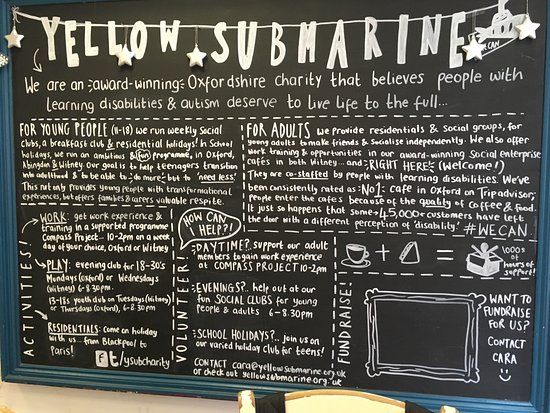 YELLOW SUBMARINE
WE CAN
We are an award-winning Oxfordshire charity that believes people with
learning disabilities & autism deserve to live life to the full...
FOR YOUNG PEOPLE (11-18) we run weekly Social
Clubs, a breakfast club & residential holidays! In School
holidays, we run an ambitious & fun programme, in Oxford,
Abingdon & Witney. Our goal is to help teenagers transition
into adulthood & to be able to 'do more' but to 'need less'.
This not only provides young people with transformational
experiences, but offers families & carers valuable respite.
FOR ADULTS we provide residentials & Social groups, for
young adults to make friends & Socialise independently. We also offer
work training & opportunities in our award-winning Social enterprise
cafés in both Witney... and RIGHT HERE (Welcome!)
They are co-staffed by people with learning disabilities. We've
been consistently rated as No1 café in Oxford on Tripadvisor;
people enter the cafés because of the quality of coffee & food.
It just so happens that some 45,000+ customers have left
the door with a different perception of 'disability'. #WECAN.
ACTIVITIES!
WORK: get work experience &
training in a supported programme
Compass Project - 10-2pm on a week
day of your choice, Oxford or Witney
PLAY: evening club for 18-30's
Mondays (Oxford) or Wednesdays
(Witney) 6-8.30pm.
13-18s youth club on Tuesdays (Witney)
or Thursdays (Oxford), 6-8.30pm.
RESIDENTIALS: come on holiday
with us... from Blackpool to
Paris!
f t/ysubcharity
VOLUNTEER!
HOW CAN
I HELP?!
DAYTIME?. support our adult
members to gain work experience
at COMPASS PROJECT 10-2pm
EVENINGS?. help out at our
fun SOCIAL CLUBS for young
people & adults 6-8.30pm
SCHOOL HOLIDAYS?.. join us on
our varied holiday club for teens!
CONTACT cara@yellowsubmarine.org.uk
or check out yellowsubmarine.org.uk
FUNDRAISE!
+ =
1000s
of hours of
support!
WANT TO
FUNDRAISE
FOR US?
CONTACT
CARA